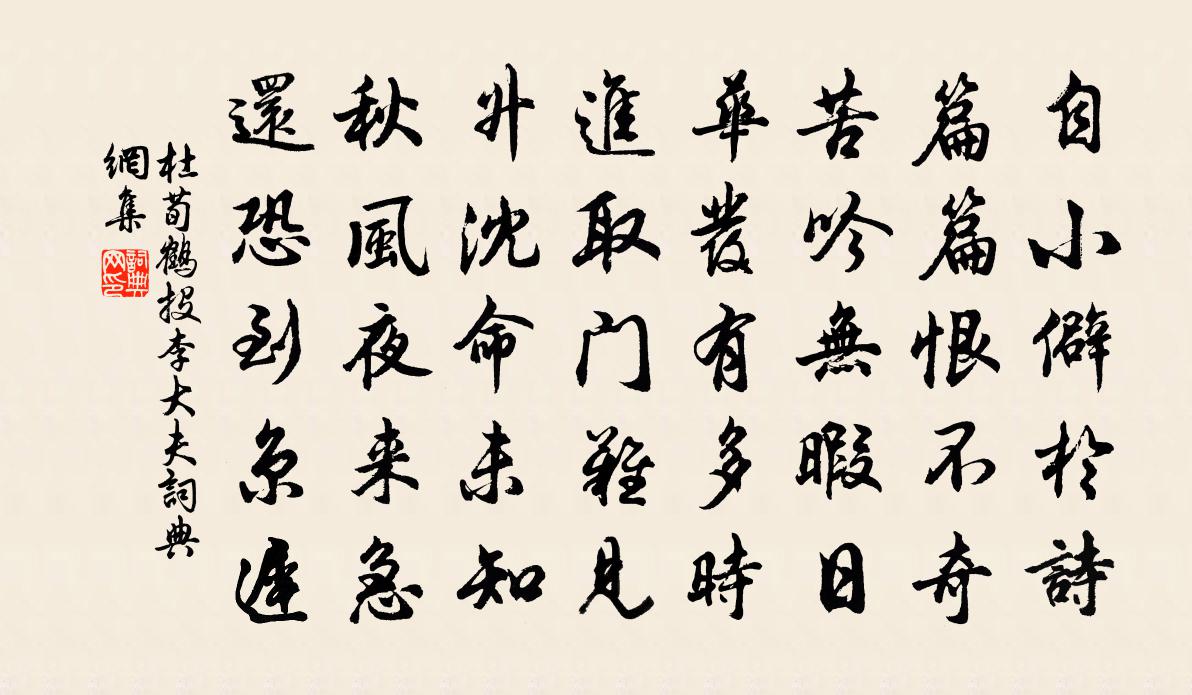 自小僻於詩
篇篇恨不奇
苦吟無暇日
華發有多時
進取门難見
升沈命未知
秋風夜来急
還恐到京遲
杜荀鶴投李大夫詞典
網集
詞典
网印